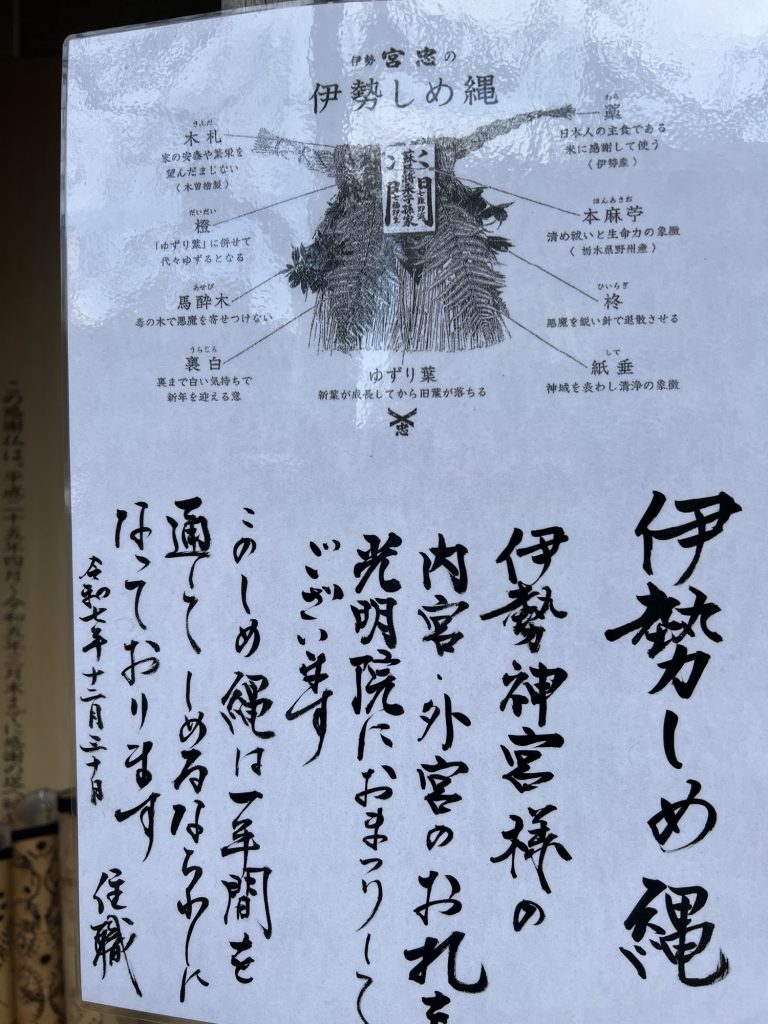 伊勢宮忠の
伊勢しめ縄
わら
藁
日本人の主食である
米に感謝して使う
〈伊勢産〉
ほんあさお
本麻苧
清め祓いと生命力の象徴
〈栃木県野州産〉
ひいらぎ
柊
悪魔を鋭い針で退散させる
しで
紙垂
神域を表わし清浄の象徴
きふだ
木札
家の安泰や繁栄を
望んだまじない
〈木曽檜製〉
だいだい
橙
「ゆずり葉」に併せて
代々ゆずるとなる
あせび
馬酔木
毒の木で悪魔を寄せつけない
うらじろ
裏白
裏まで白い気持ちで
新年を迎える意
ゆずり葉
新葉が成長してから旧葉が落ちる
忠
伊勢しめ縄
伊勢神宮様の
内宮・外宮のお札を
光明院におまつりして
ございます
このしめ縄は一年間を
通して しめるならわしに
なっております
令和七年十二月三十日
住職